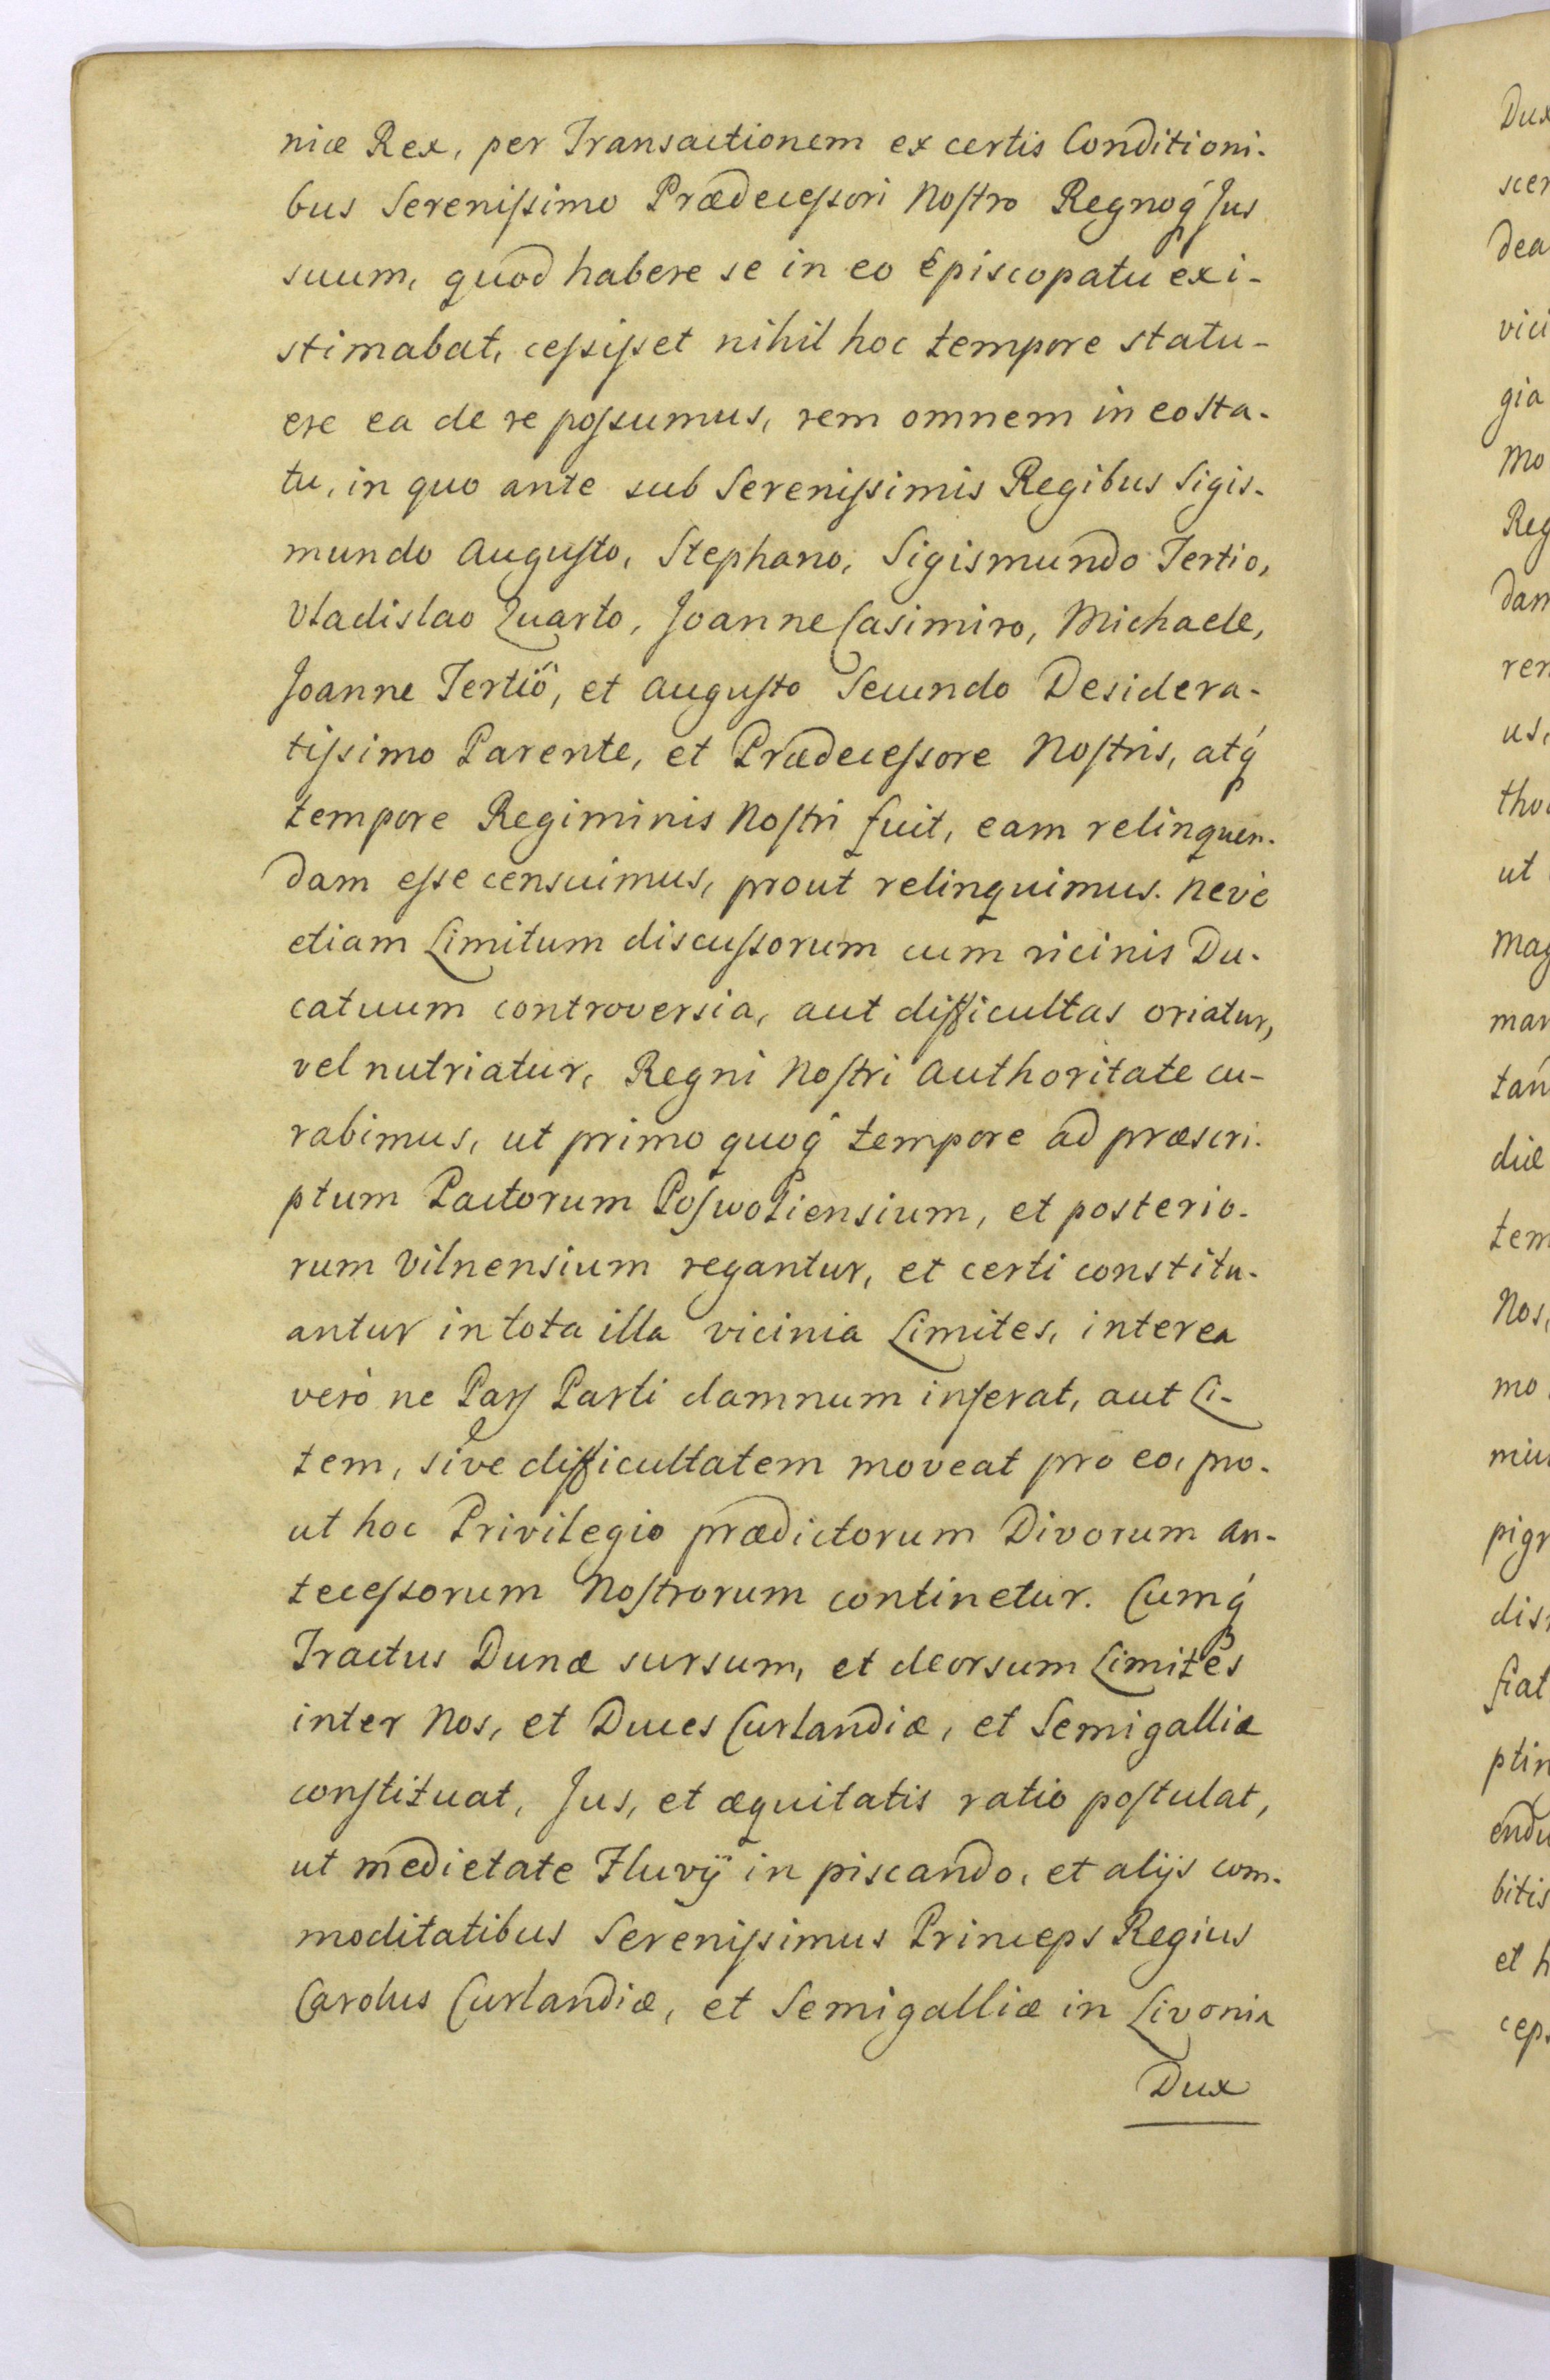 niæ Rex, per Transactionem ex certis Conditioni-
bus Serenissimo Prædecessori Nostro Regnoq́ Jus
suum, quod habere se in eo Episcopatu exi-
stimabat, cessisset nihil hoc tempore statu-
ere ea de re possumus, rem omnem in eo sta-
tu, in quo ante sub Serenissimis Regibus Sigis-
mundo Augusto, Stephano, Sigismundo Tertio,
Vladislao Quarto, Joanne Casimiro, Michaele,
Joanne Tertiô, et Augusto Secundo Desidera-
tissimo Parente, et Prædecessore Nostris, atq́
tempore Regiminis Nostri fuit, eam relinquen-
dam esse censuimus, prout relinquimus. Nevè
etiam Limitum discussorum cum vicinis Du-
catuum controversia, aut difficultas oriatur,
vel nutriatur, Regni Nostri Authoritate cu-
rabimus, ut primo quoq́ tempore ad præscri-
ptum Pactorum Poswoliensium, et posterio-
rum Vilnensium regantur, et certi constitu-
antur in tota illa vicinia Limites, interea
verò ne Pars Parti damnum inferat, aut Li-
tem, sive difficultatem moveat pro eo, pro-
ut hoc Privilegio prædictorum Divorum An-
tecessorum Nostrorum continetur. Cumq́
Tractus Dunæ sursum, et deorsum Limites
inter Nos, et Duces Curlandiæ, et Semigalliæ
constituat, Jus, et æquitatis ratio postulat,
ut medietate Fluvÿ in piscando, et alijs com-
moditatibus Serenissimus Princeps Regius
Carolus Curlandiæ, et Semigalliæ in Livonia
Dux
Dux
scen
dea
vici
gia
Mo
Reg
dam
rer
us,
tho
ut
Mag
man
tan
diæ
tem
Nos,
mo
mius
pigr
dis
fiat
ptin
endu
bitis
et h
cep